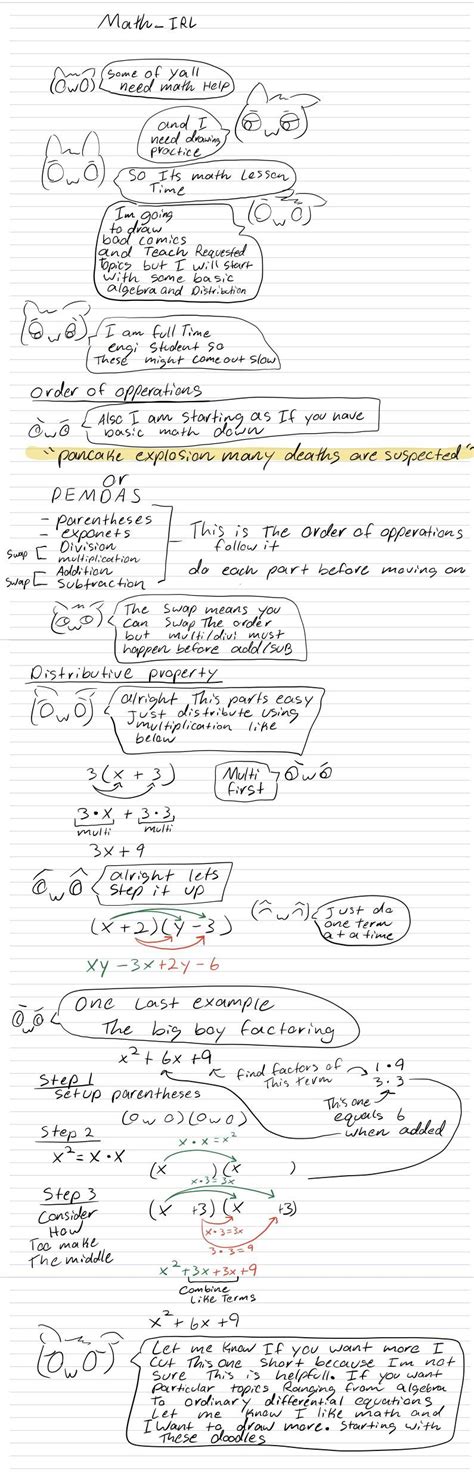 Math_IRL
OwO
Some of yall
need math Help
and I
need drawing
practice
OwO
OwO
So Its math Lesson
Time
OwO
Im going
to draw
bad comics
and Teach Requested
Topics but I will start
with some basic
algebra and Distribution
OwO
I am full Time
engi student so
These might come out slow
Order of opperations
OwO
Also I am starting as If you have
basic math down
"pancake explosion many deaths are suspected"
or
PEMDAS
- parentheses
- exponets
Swap [ Division
multiplication
Swap [ Addition
Subtraction
This is The order of opperations
follow it
do each part before moving on
OwO
The Swap means you
can swap The order
but multi/divi must
happen before add/SUB
Distributive property
OwO
alright This parts easy
Just distribute using
multiplication like
below
3(x + 3)
Multi
first
OwO
3•x + 3•3
multi multi
3x+9
OwO
alright lets
step it up
(x+2)(y-3)
(^w^)
Just do
one term
at a time
xy-3x+2y-6
OwO
One Last example
The big boy factoring
x²+6x+9
find factors of
This term
1•9
3•3
This one
equals 6
when added
Step 1
setup parentheses
(OwO)(OwO)
Step 2
x²=x•x
x•x=x²
(x )(x )
Step 3
Consider
How
Too make
The middle
x•3=3x
(x +3)(x +3)
x•3=3x
3•3=9
x²+3x+3x+9
Combine
Like Terms
x²+6x+9
OwO
Let me know If you want more I
cut This one short because Im not
sure This is helpfull. If you want
particular topics Ranging from algebra
To ordinary differential equations
Let me know I like math and
I want to draw more. Starting with
These doodles